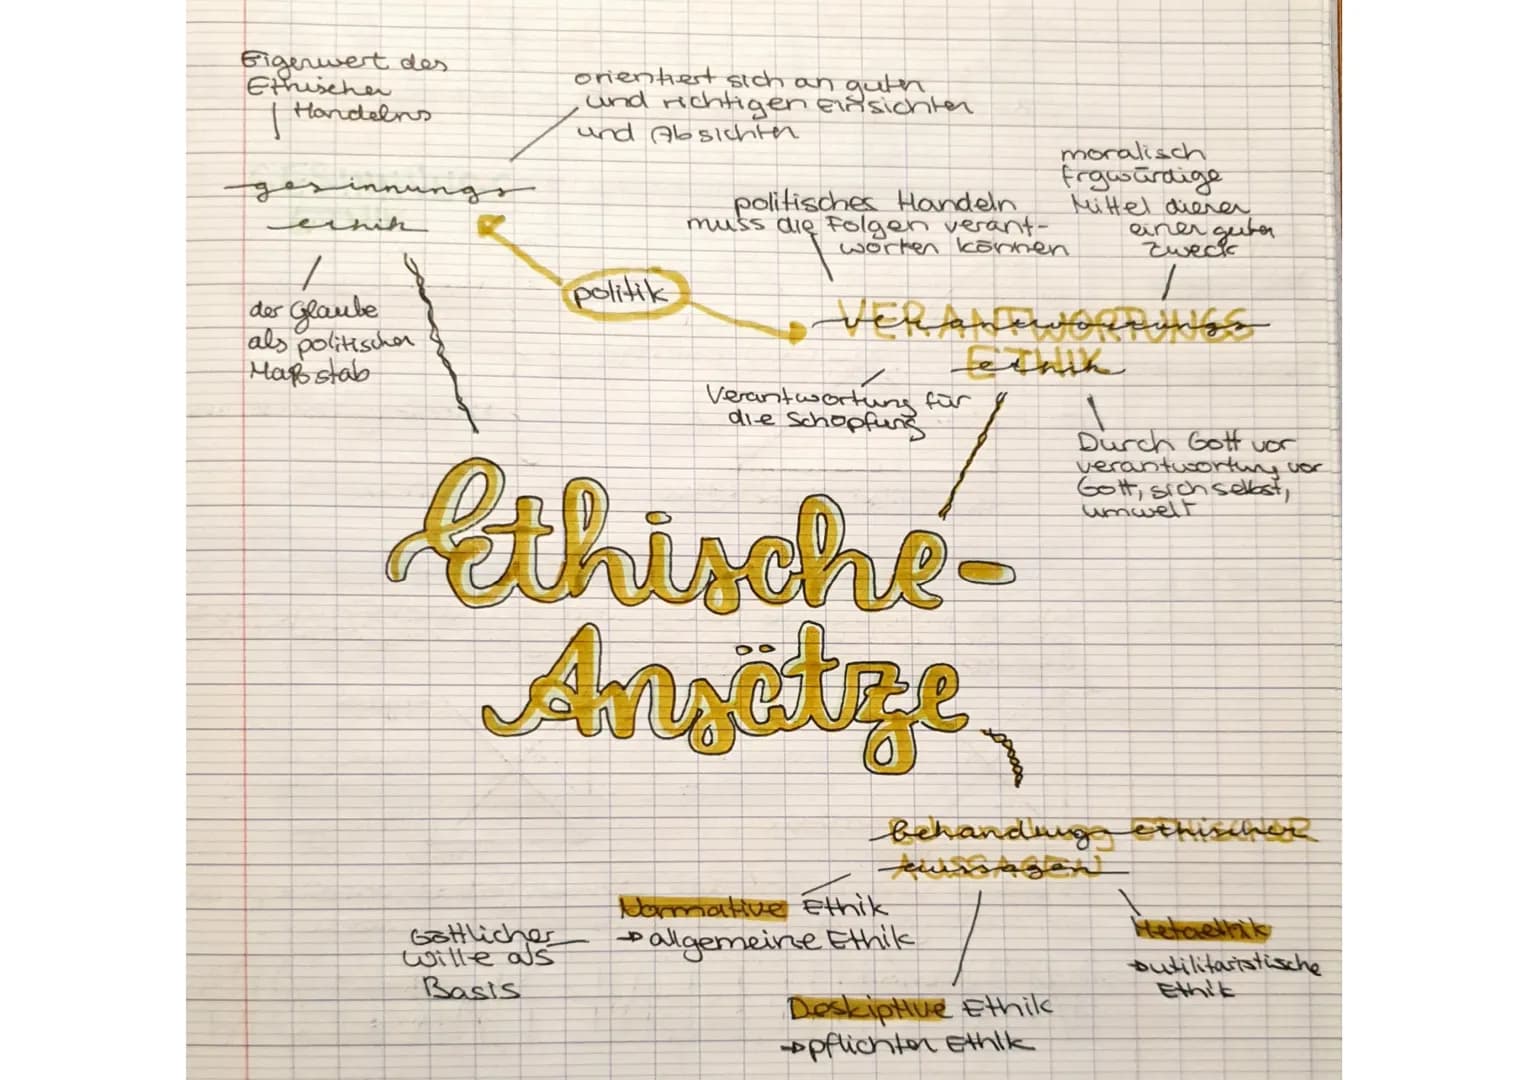 Eigenwert des
Ethischen
Handelns
orientiert sich an guten
und richtigen Einsichten
und Absichten
gesinnungs
ethik
der Glaube
als politischer
Maßstab
politik
politisches Handeln
muss die Folgen verant-
worten können
moralisch
frgwürdige
Mittel dienen
einer guten
Zweck
VERANTWORTUNGS
verantwortungs
ETHIK
ethik
Verantwortung für
die Schöpfung
Durch Gott vor
verantwortung vor
Gott, sich selbst,
umwelt
Ethische-
Ansätze
Behandlung ethischer
aussagen
Normative Ethik
→ allgemeine Ethik
Göttlicher
Wille als
Basis
Deskiptive Ethik
→ pflichten Ethik
Metaethik
→ utilitaristische
Ethik